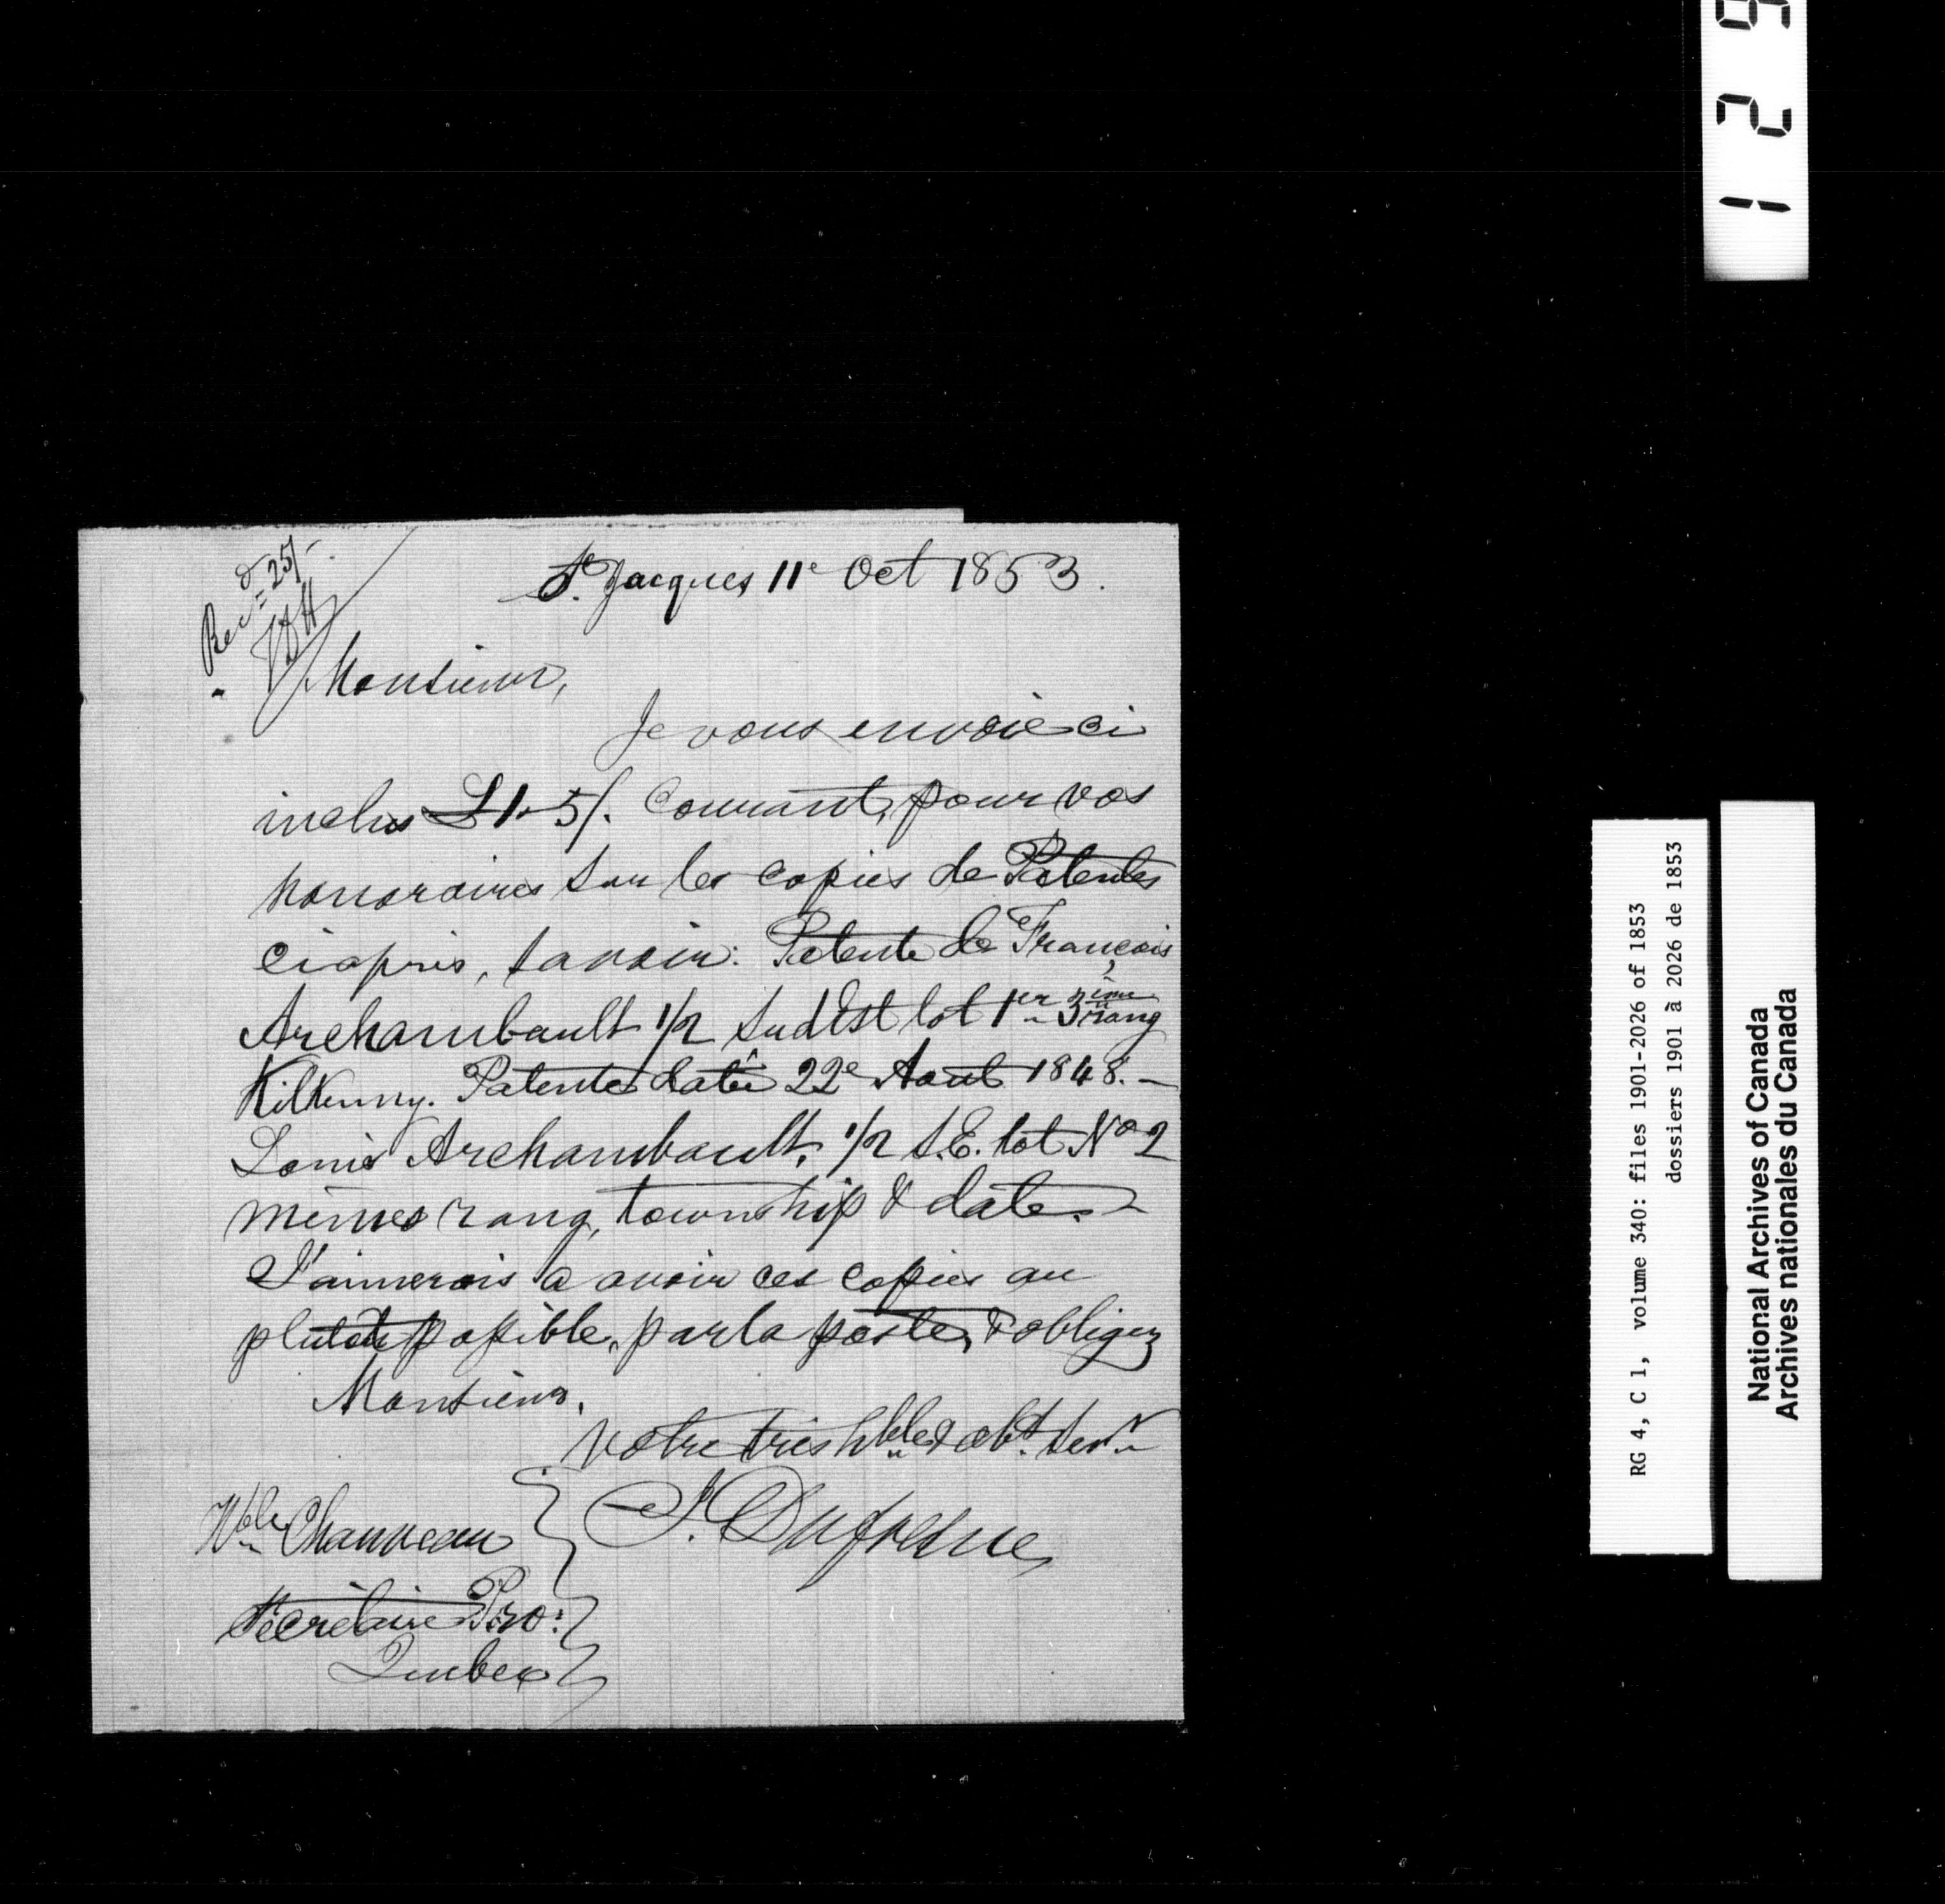 Recd 25/-
St. Jacques 11e Oct 1853.
Monsieur,
Je vous envoie ci
inclus £1.5/. Courant, pour vos
honoraires sur les copies de Patentes
ciaprès, savoir: Patente de François
Archambault 1/2 Sud Est lot 1er 3ime rang
Kilkenny. Patente datée 22e Aout 1848. —
Louis Archambault, 1/2 S.E. lot No 2
mêmes rang, township & date. —
J'aimerois a avoir ces copies au
plutot possible, par la poste, & obligez
Monsieur,
Votre très hble & obt. Servr
J. Dufresne
Hble Chauveau
Sécrétaire Pro:
Quebec
1 2 9
RG 4, C 1, volume 340: files 1901-2026 of 1853
dossiers 1901 à 2026 de 1853
National Archives of Canada
Archives nationales du Canada